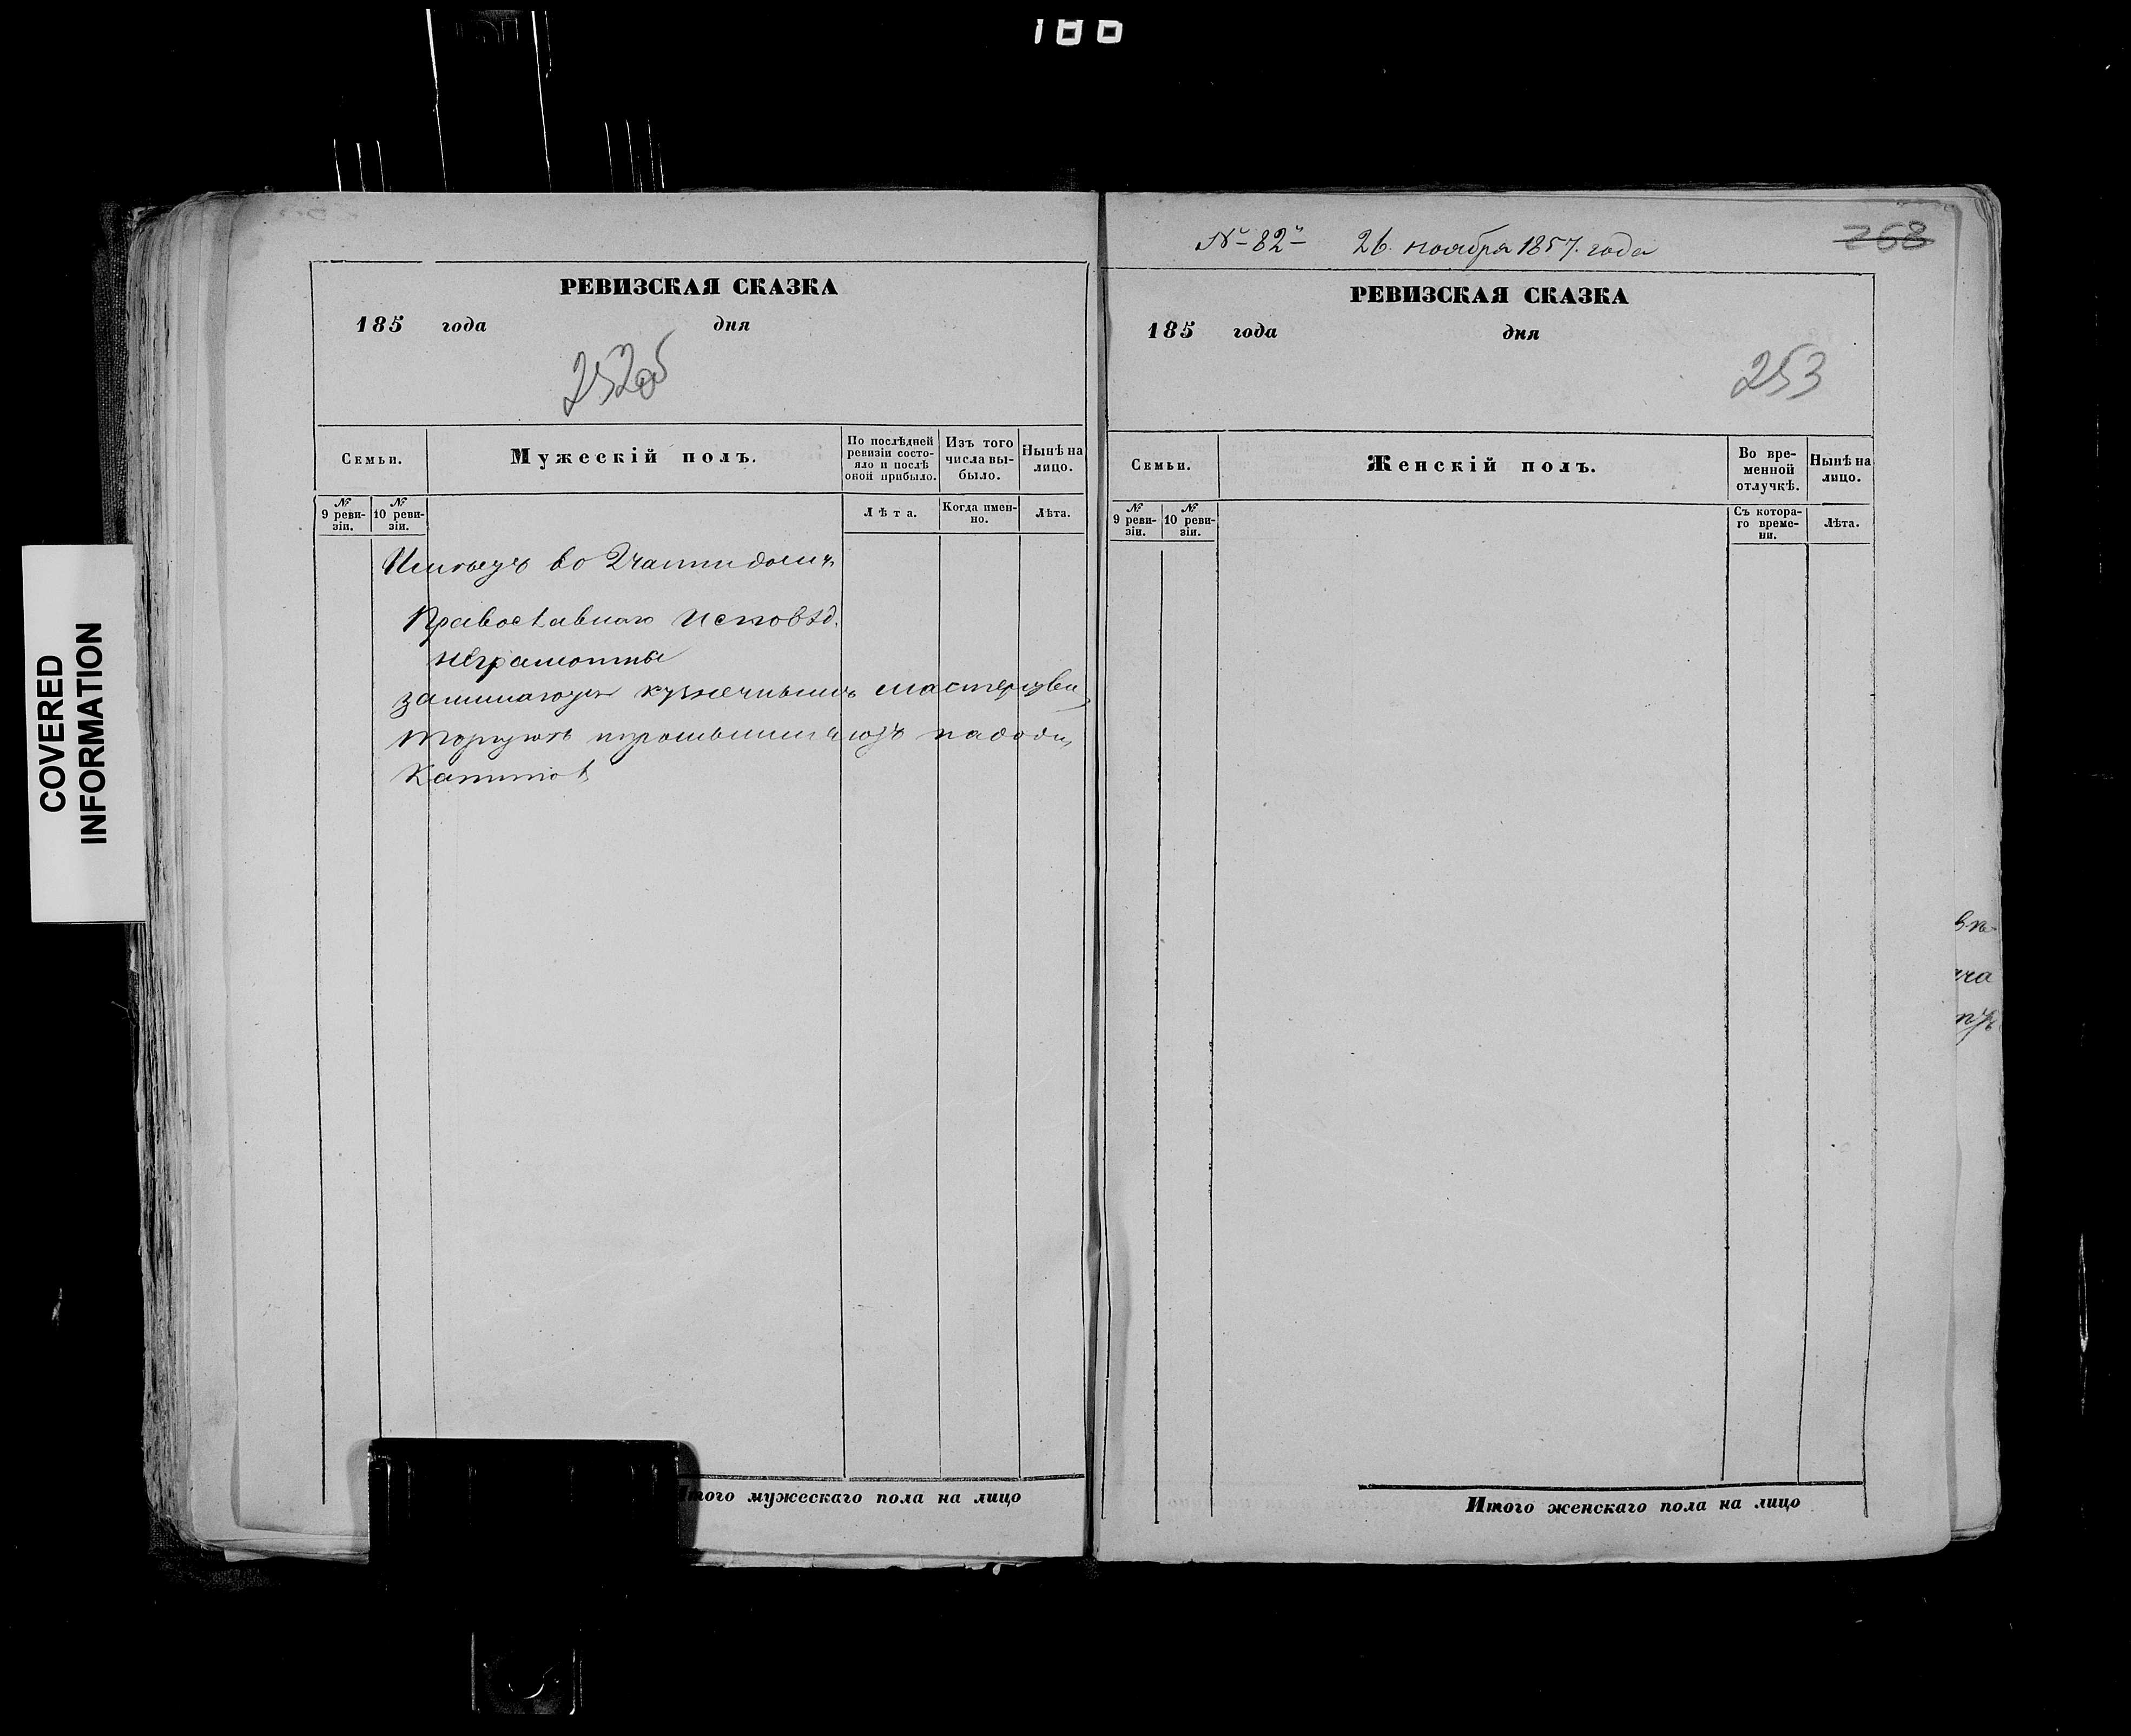 186
РЕВИЗСКАЯ СКАЗКА
185 года дня
252об
Семьи.
Мужескій полъ.
По послѣдней ревизіи состояло и послѣ оной прибыло.
Изъ того числа выбыло.
Нынѣ на лицо.
№ 9 ревизіи.
№ 10 ревизіи.
Лѣта.
Когда именно.
Лѣта.
Имѣютъ во 2 части домъ
Православнаго исповѣд.
неграмотны
занимаются кузнечнымъ мастерство
торгуютъ
Итого мужескаго пола на лицо
№ 82 26 ноября 1857. года
268
РЕВИЗСКАЯ СКАЗКА
185 года дня
253
Семьи.
Женскій полъ.
Во временной отлучкѣ.
Нынѣ на лицо.
№ 9 ревизіи.
№ 10 ревизіи.
Съ котораго времени.
Лѣта.
Итого женскаго пола на лицо
COVERED
INFORMATION